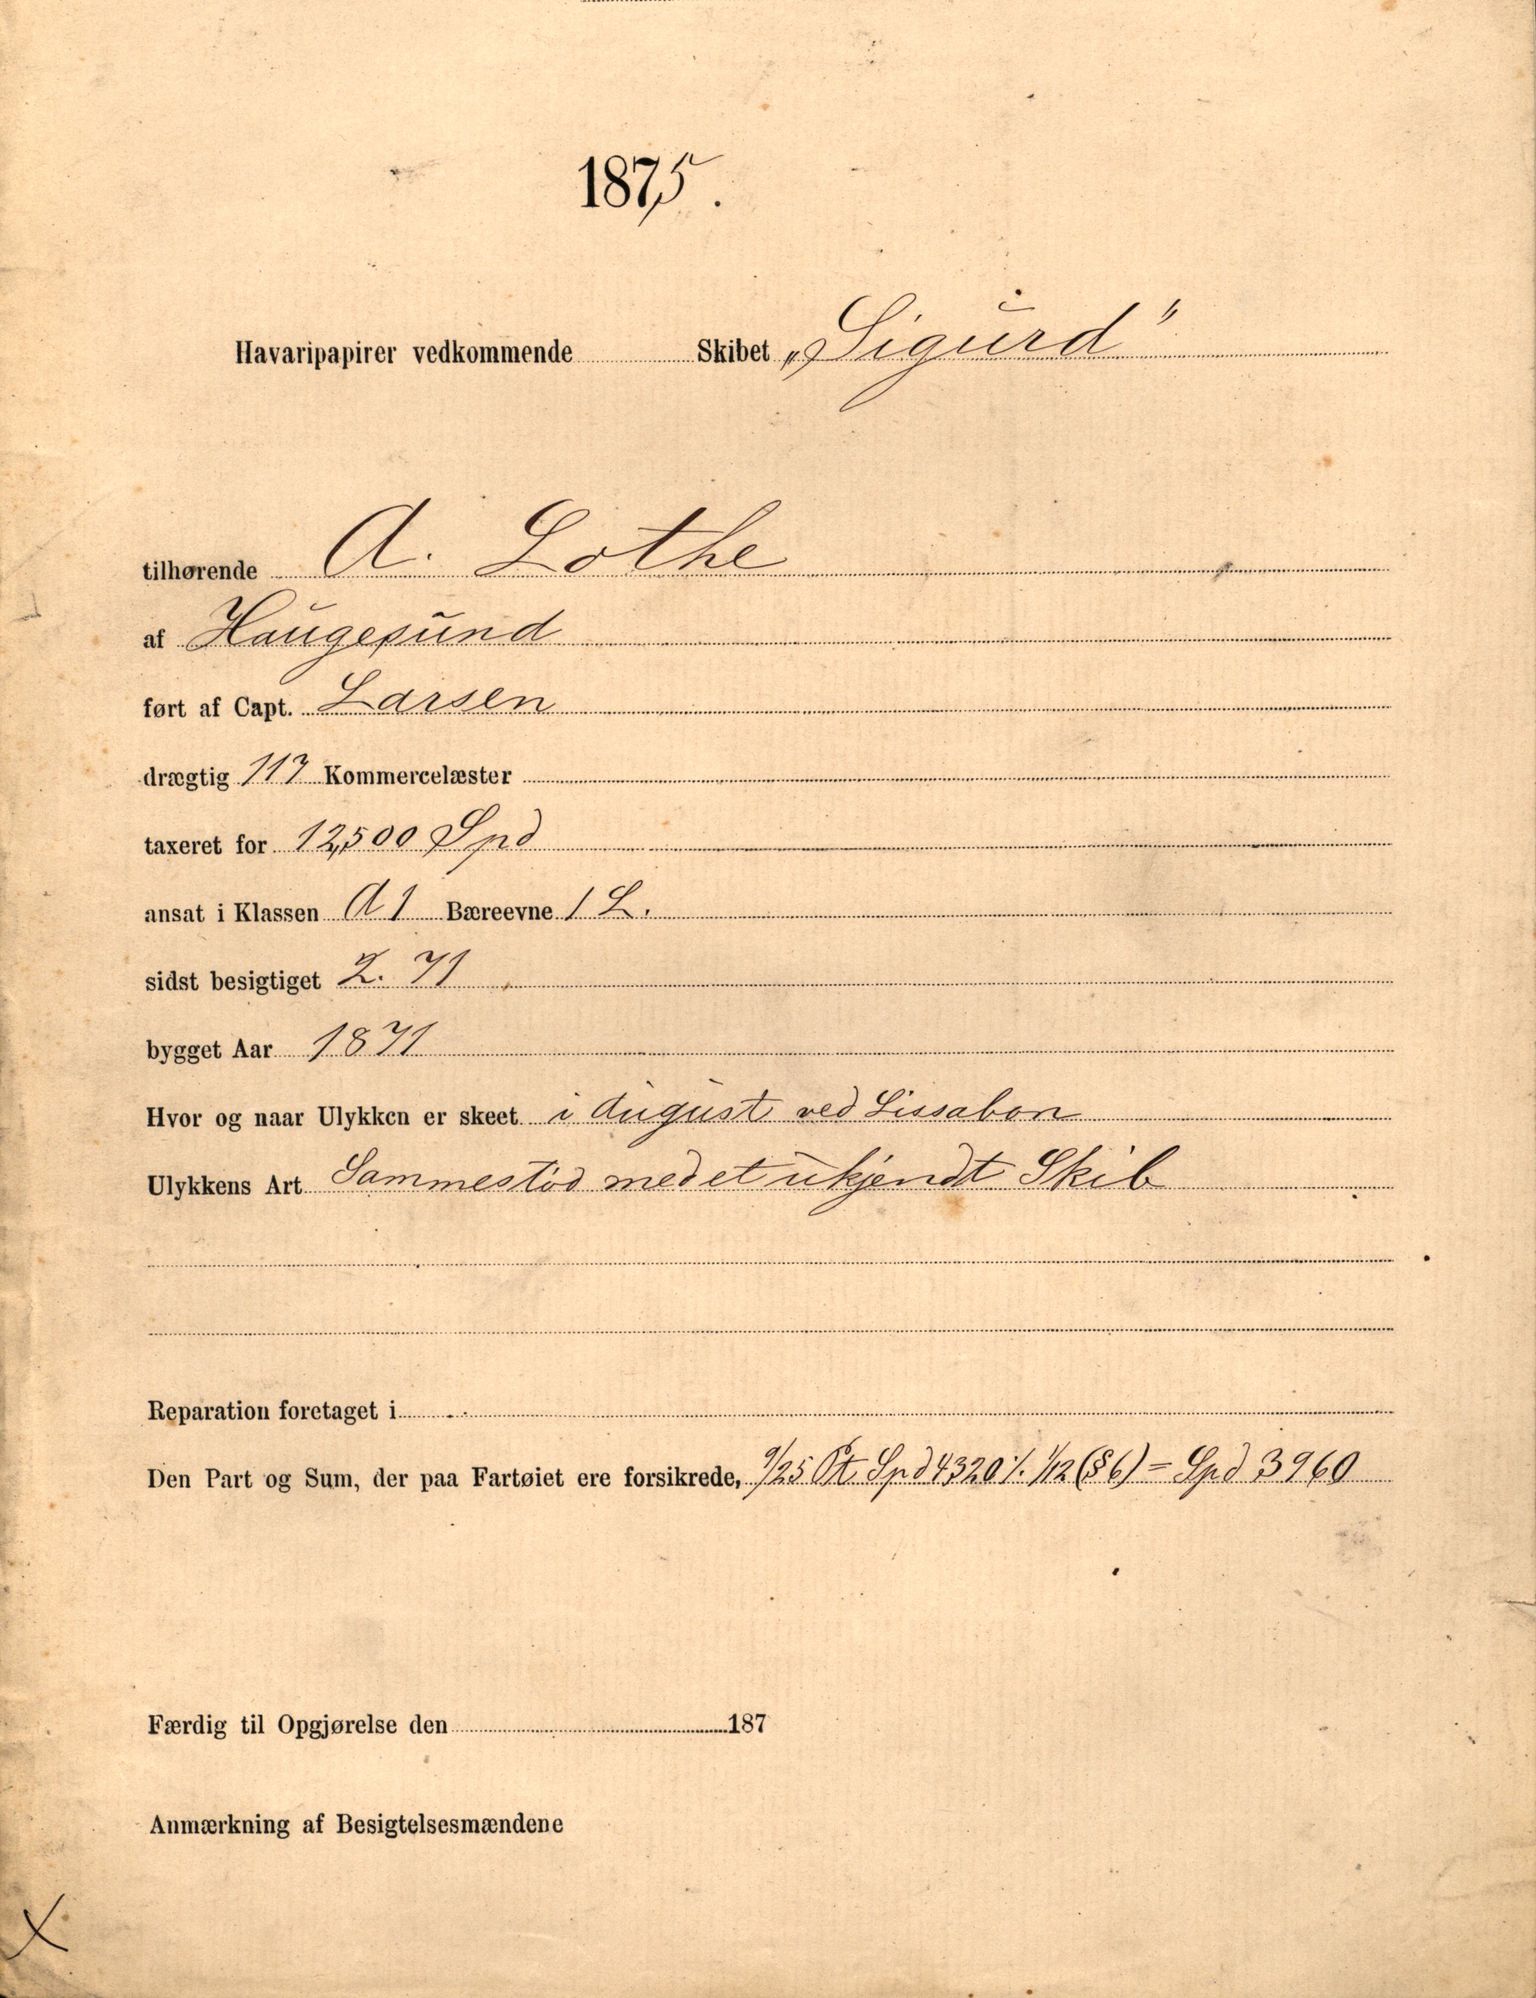 1875.
Havaripapirer vedkommende Skibet „Sigurd"
tilhørende A. Lothe
af Haugesund
ført af Capt. Larsen
drægtig 117 Kommercelæster
taxeret for 12,500 Spd
ansat i Klassen A 1 Bæreevne 1 L.
sidst besigtiget 2. 71
bygget Aar 1871
Hvor og naar Ulykken er skeet i August ved Lissabon
Ulykkens Art Sammestød med et ukjendt Skib
Reparation foretaget i
Den Part og Sum, der paa Fartøiet ere forsikrede, 9/25 Pt Spd 4320 ./. 1/12 (§6) = Spd 3960
Færdig til Opgjørelse den 187
Anmærkning af Besigtelsesmændene
X